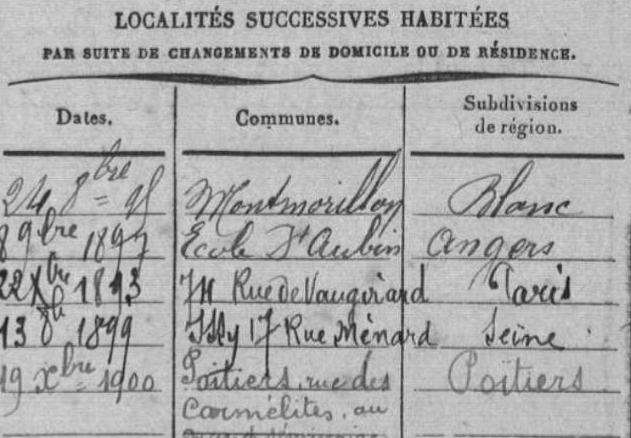 LOCALITÉS SUCCESSIVES HABITÉES
PAR SUITE DE CHANGEMENTS DE DOMICILE OU DE RÉSIDENCE.
Dates. Communes. Subdivisions de région.
24 8bre = 98 Montmorillon Blanc
8 9bre 1897 Ecole St Aubin Angers
22 Xbre 1893 74 Rue de Vaugirard Paris
13 8bre 1899 Issy 17 Rue Ménard Seine
19 Xbre 1900 Poitiers, rue des Poitiers
Carmélites, au
grand séminaire